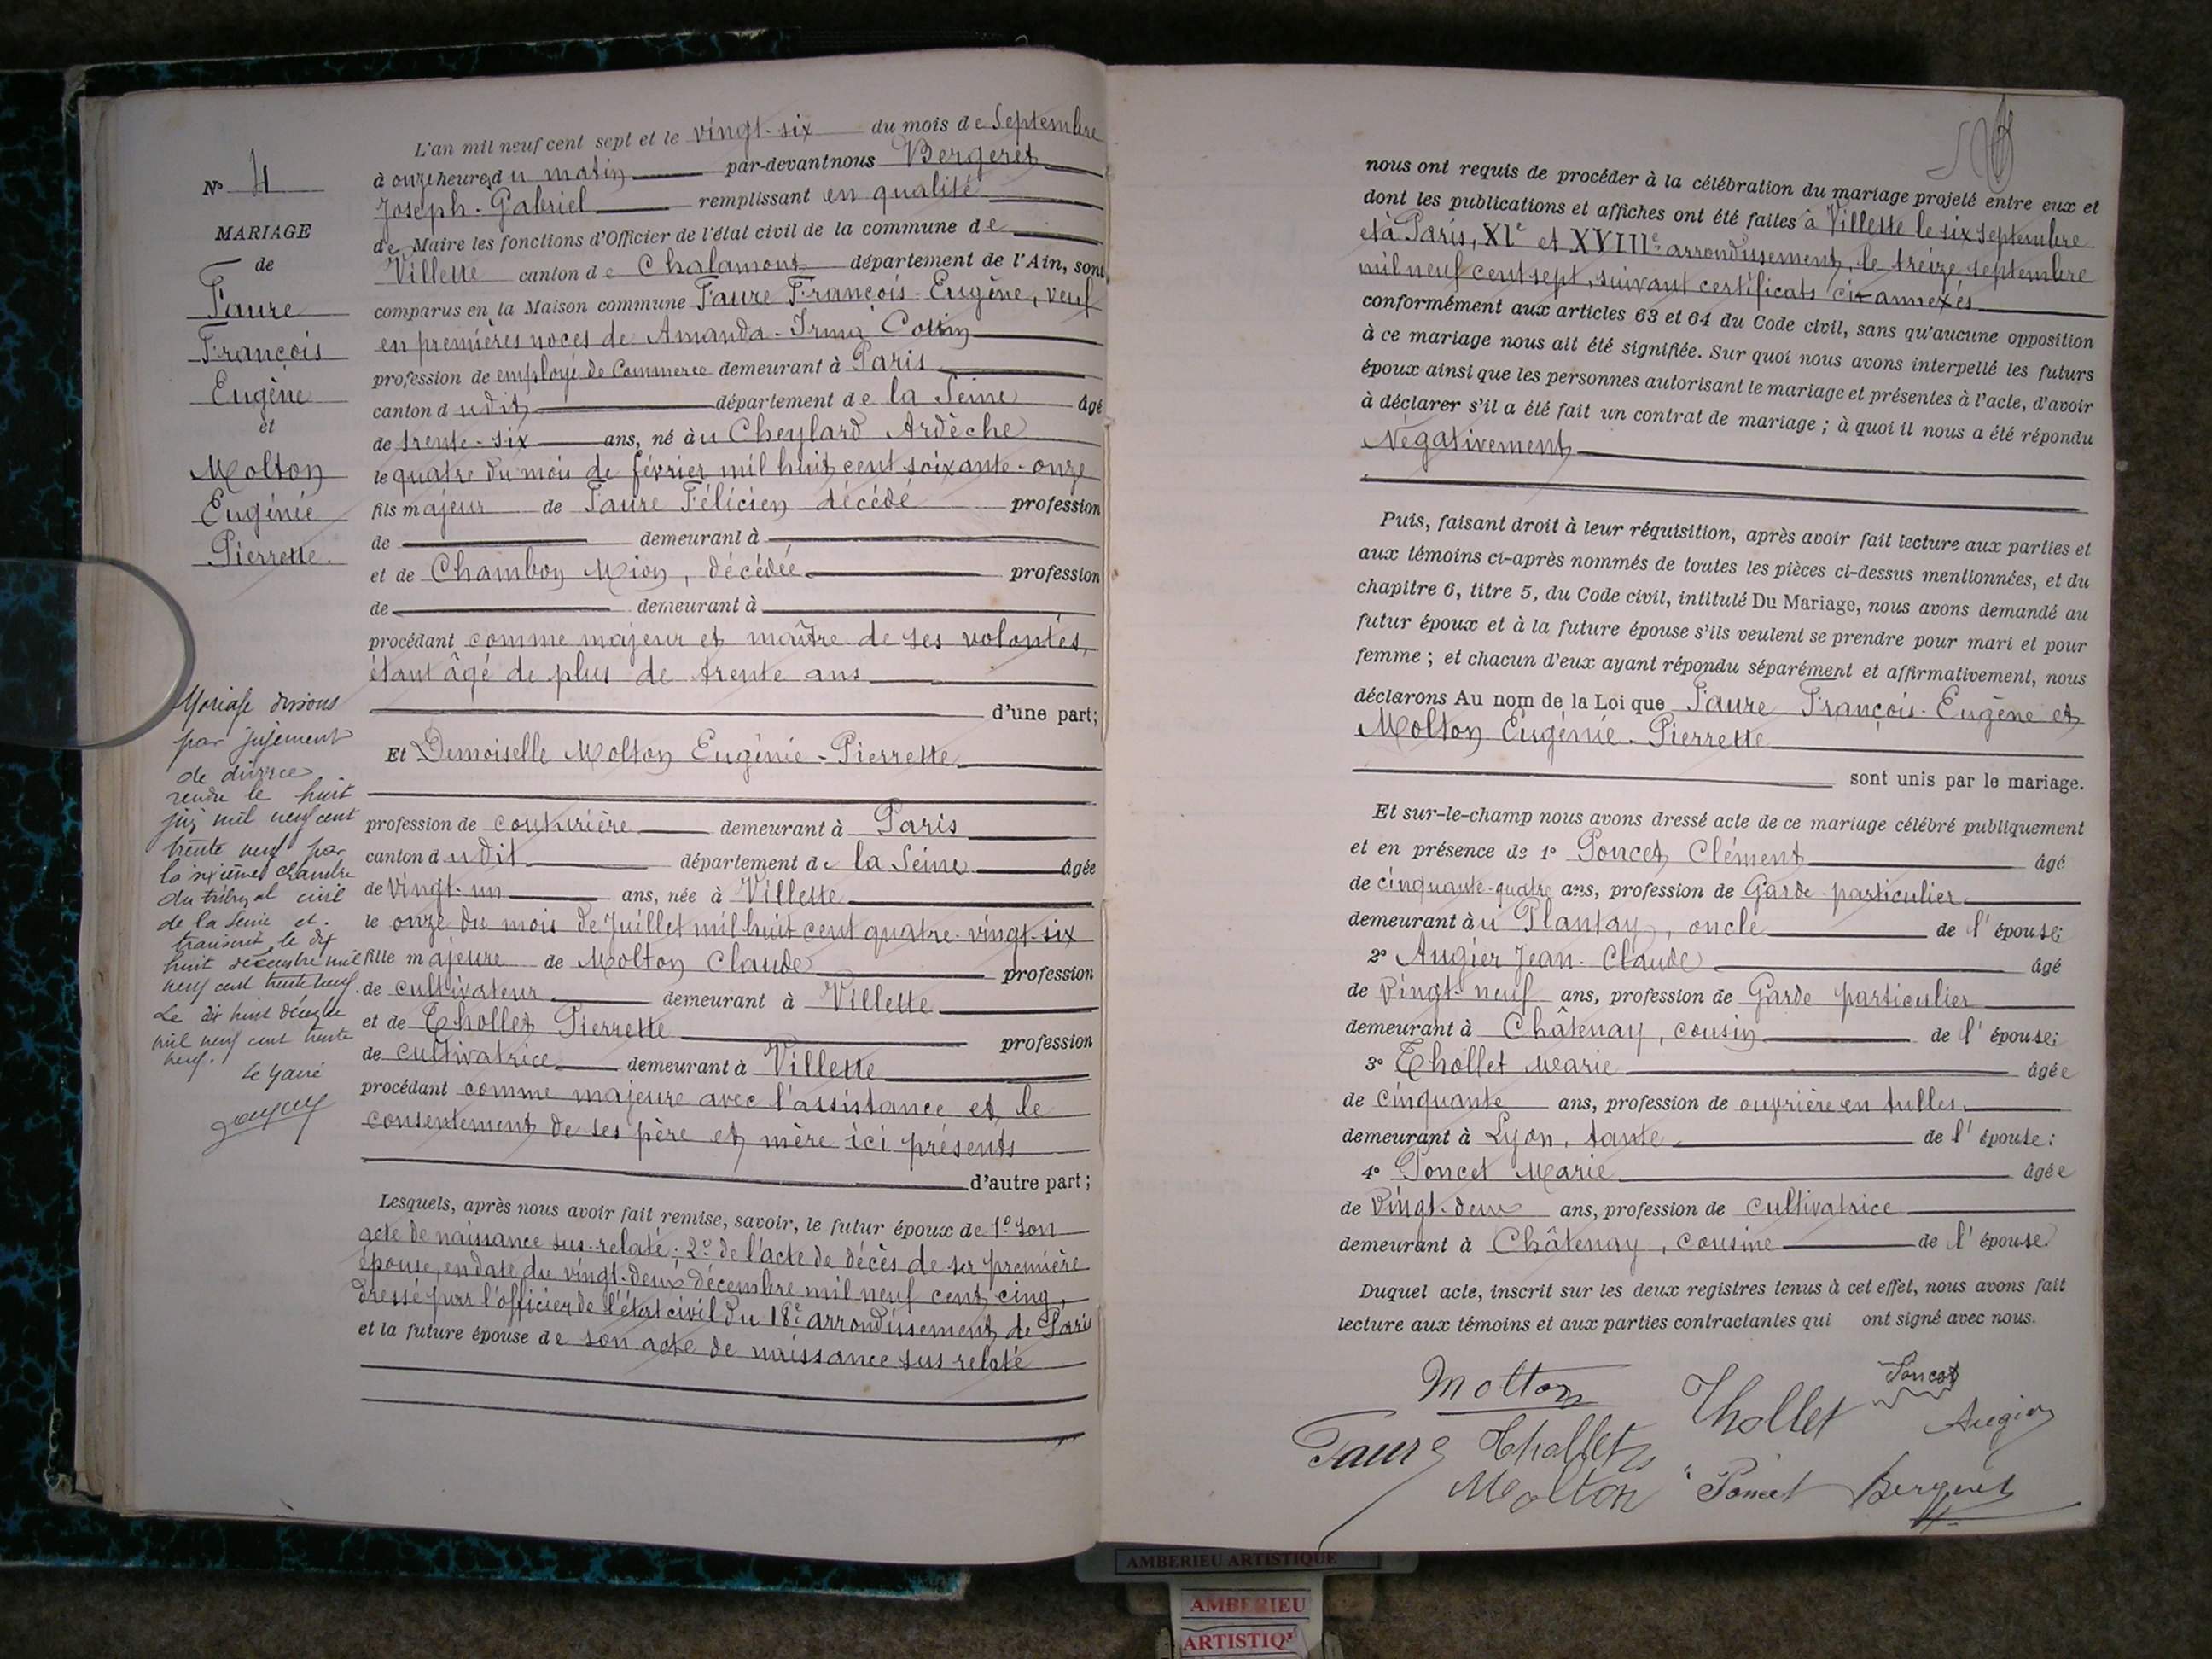 N° 4
MARIAGE
de
Faure
François
Eugène
et
Molton
Eugénie
Pierrette.
Mariage dissous
par jugement
de divorce
rendu le huit
juin mil neuf cent
trente neuf par
la sixième chambre
du tribunal civil
de la Seine et
transcrit le dix
huit décembre mil
neuf cent trente neuf.
Le dix huit décembre
mil neuf cent trente
neuf.
Le Maire
L'an mil neuf cent sept et le vingt-six du mois de Septembre
à onze heures du matin par-devant nous Bergeret
Joseph-Gabriel remplissant en qualité
de Maire les fonctions d'Officier de l'état civil de la commune de
Villette canton de Chalamont département de l'Ain, sont
comparus en la Maison commune Faure François-Eugène, veuf
en premières noces de Amanda-Irma Cottin
profession de employé de Commerce demeurant à Paris
canton dudit département de la Seine âgé
de trente-six ans, né au Cheylard Ardèche
le quatre du mois de février mil huit cent soixante-onze
fils majeur de Faure Félicien décédé profession
de demeurant à
et de Chambon Mion, décédée profession
de demeurant à
procédant comme majeur et maître de ses volontés,
étant âgé de plus de trente ans
d'une part;
Et Demoiselle Molton Eugénie-Pierrette
profession de couturière demeurant à Paris
canton dudit département de la Seine âgée
de vingt-un ans, née à Villette
le onze du mois de Juillet mil huit cent quatre-vingt-six
fille majeure de Molton Claude profession
de cultivateur demeurant à Villette
et de Thollet Pierrette profession
de cultivatrice demeurant à Villette
procédant comme majeure avec l'assistance et le
consentement de ses père et mère ici présents
d'autre part;
Lesquels, après nous avoir fait remise, savoir, le futur époux de 1° son
acte de naissance sus-relaté; 2° de l'acte de décès de sa première
épouse, en date du vingt-deux décembre mil neuf cent cinq,
dressé par l'officier de l'état civil du 18e arrondissement de Paris
et la future épouse de son acte de naissance sus relaté
nous ont requis de procéder à la célébration du mariage projeté entre eux et
dont les publications et affiches ont été faites à Villette le six septembre
et à Paris, XIe et XVIIIe arrondissement, le treize septembre
mil neuf cent sept, suivant certificats ci-annexés
conformément aux articles 63 et 64 du Code civil, sans qu'aucune opposition
à ce mariage nous ait été signifiée. Sur quoi nous avons interpellé les futurs
époux ainsi que les personnes autorisant le mariage et présentes à l'acte, d'avoir
à déclarer s'il a été fait un contrat de mariage; à quoi il nous a été répondu
Négativement
Puis, faisant droit à leur réquisition, après avoir fait lecture aux parties et
aux témoins ci-après nommés de toutes les pièces ci-dessus mentionnées, et du
chapitre 6, titre 5, du Code civil, intitulé Du Mariage, nous avons demandé au
futur époux et à la future épouse s'ils veulent se prendre pour mari et pour
femme; et chacun d'eux ayant répondu séparément et affirmativement, nous
déclarons Au nom de la Loi que Faure François-Eugène et
Molton Eugénie-Pierrette
sont unis par le mariage.
Et sur-le-champ nous avons dressé acte de ce mariage célébré publiquement
et en présence de 1° Poncet Clément âgé
de cinquante-quatre ans, profession de Garde-particulier
demeurant au Plantay, oncle de l'épouse;
2° Augier Jean-Claude âgé
de vingt-neuf ans, profession de Garde particulier
demeurant à Châtenay, cousin de l'épouse;
3° Thollet Marie âgée
de cinquante ans, profession de ouvrière en tulles,
demeurant à Lyon, tante de l'épouse;
4° Poncet Marie âgée
de vingt-deux ans, profession de cultivatrice
demeurant à Châtenay, cousine de l'épouse.
Duquel acte, inscrit sur les deux registres tenus à cet effet, nous avons fait
lecture aux témoins et aux parties contractantes qui ont signé avec nous.
Molton Thollet Poncet
Faure Thollet Augier
Molton Poncet Bergeret
AMBERIEU ARTISTIQUE
AMBERIEU
ARTISTIQ